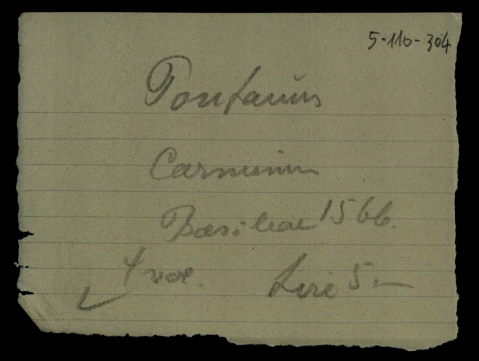 5-110-304
Pontanus
Carminum
Basileae 1566.
4 vol.
Lire 5 —